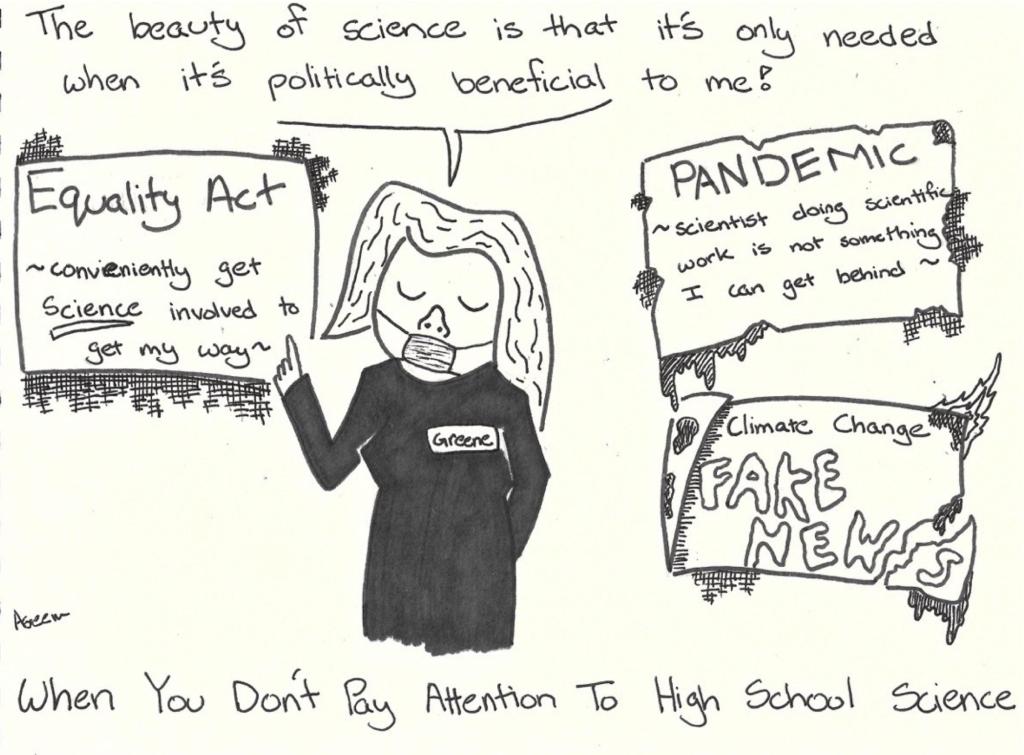 The beauty of science is that it's only needed
when it's politically beneficial to me!
Equality Act
~convieniently get
Science involved to
get my way~
PANDEMIC
~scientist doing scientific
work is not something
I can get behind~
Greene
Climate Change
FAKE
NEWS
When You Don't Pay Attention To High School Science